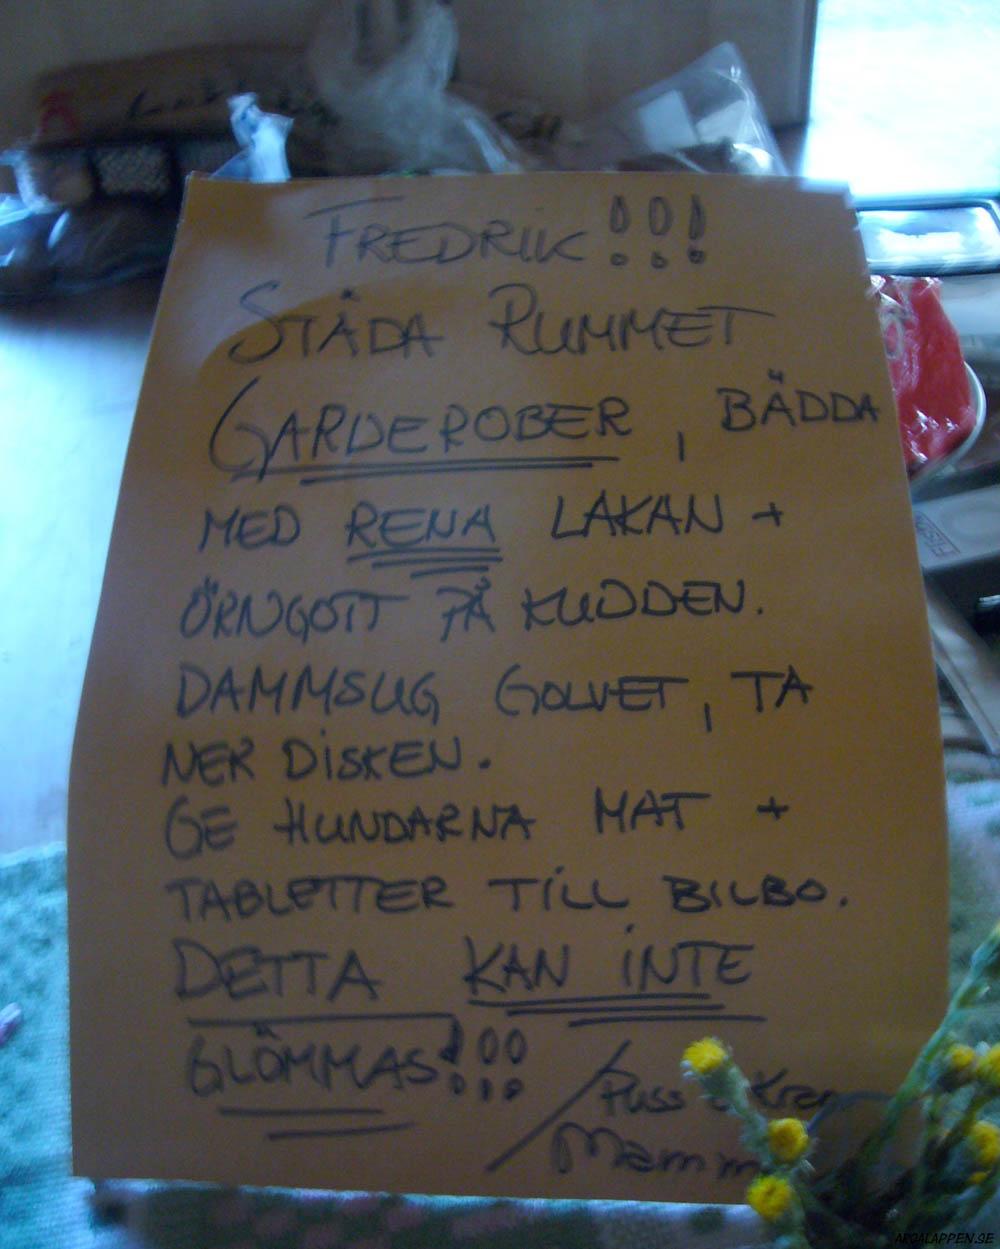 FREDRIK!!!
STÄDA RUMMET
GARDEROBER, BÄDDA
MED RENA LAKAN +
ÖRNGOTT PÅ KUDDEN.
DAMMSUG GOLVET, TA
NER DISKEN.
GE HUNDARNA MAT +
TABLETTER TILL BILBO.
DETTA KAN INTE
GLÖMMAS!!!
/Puss & Kram
Mamm
ARGALAPPEN.SE